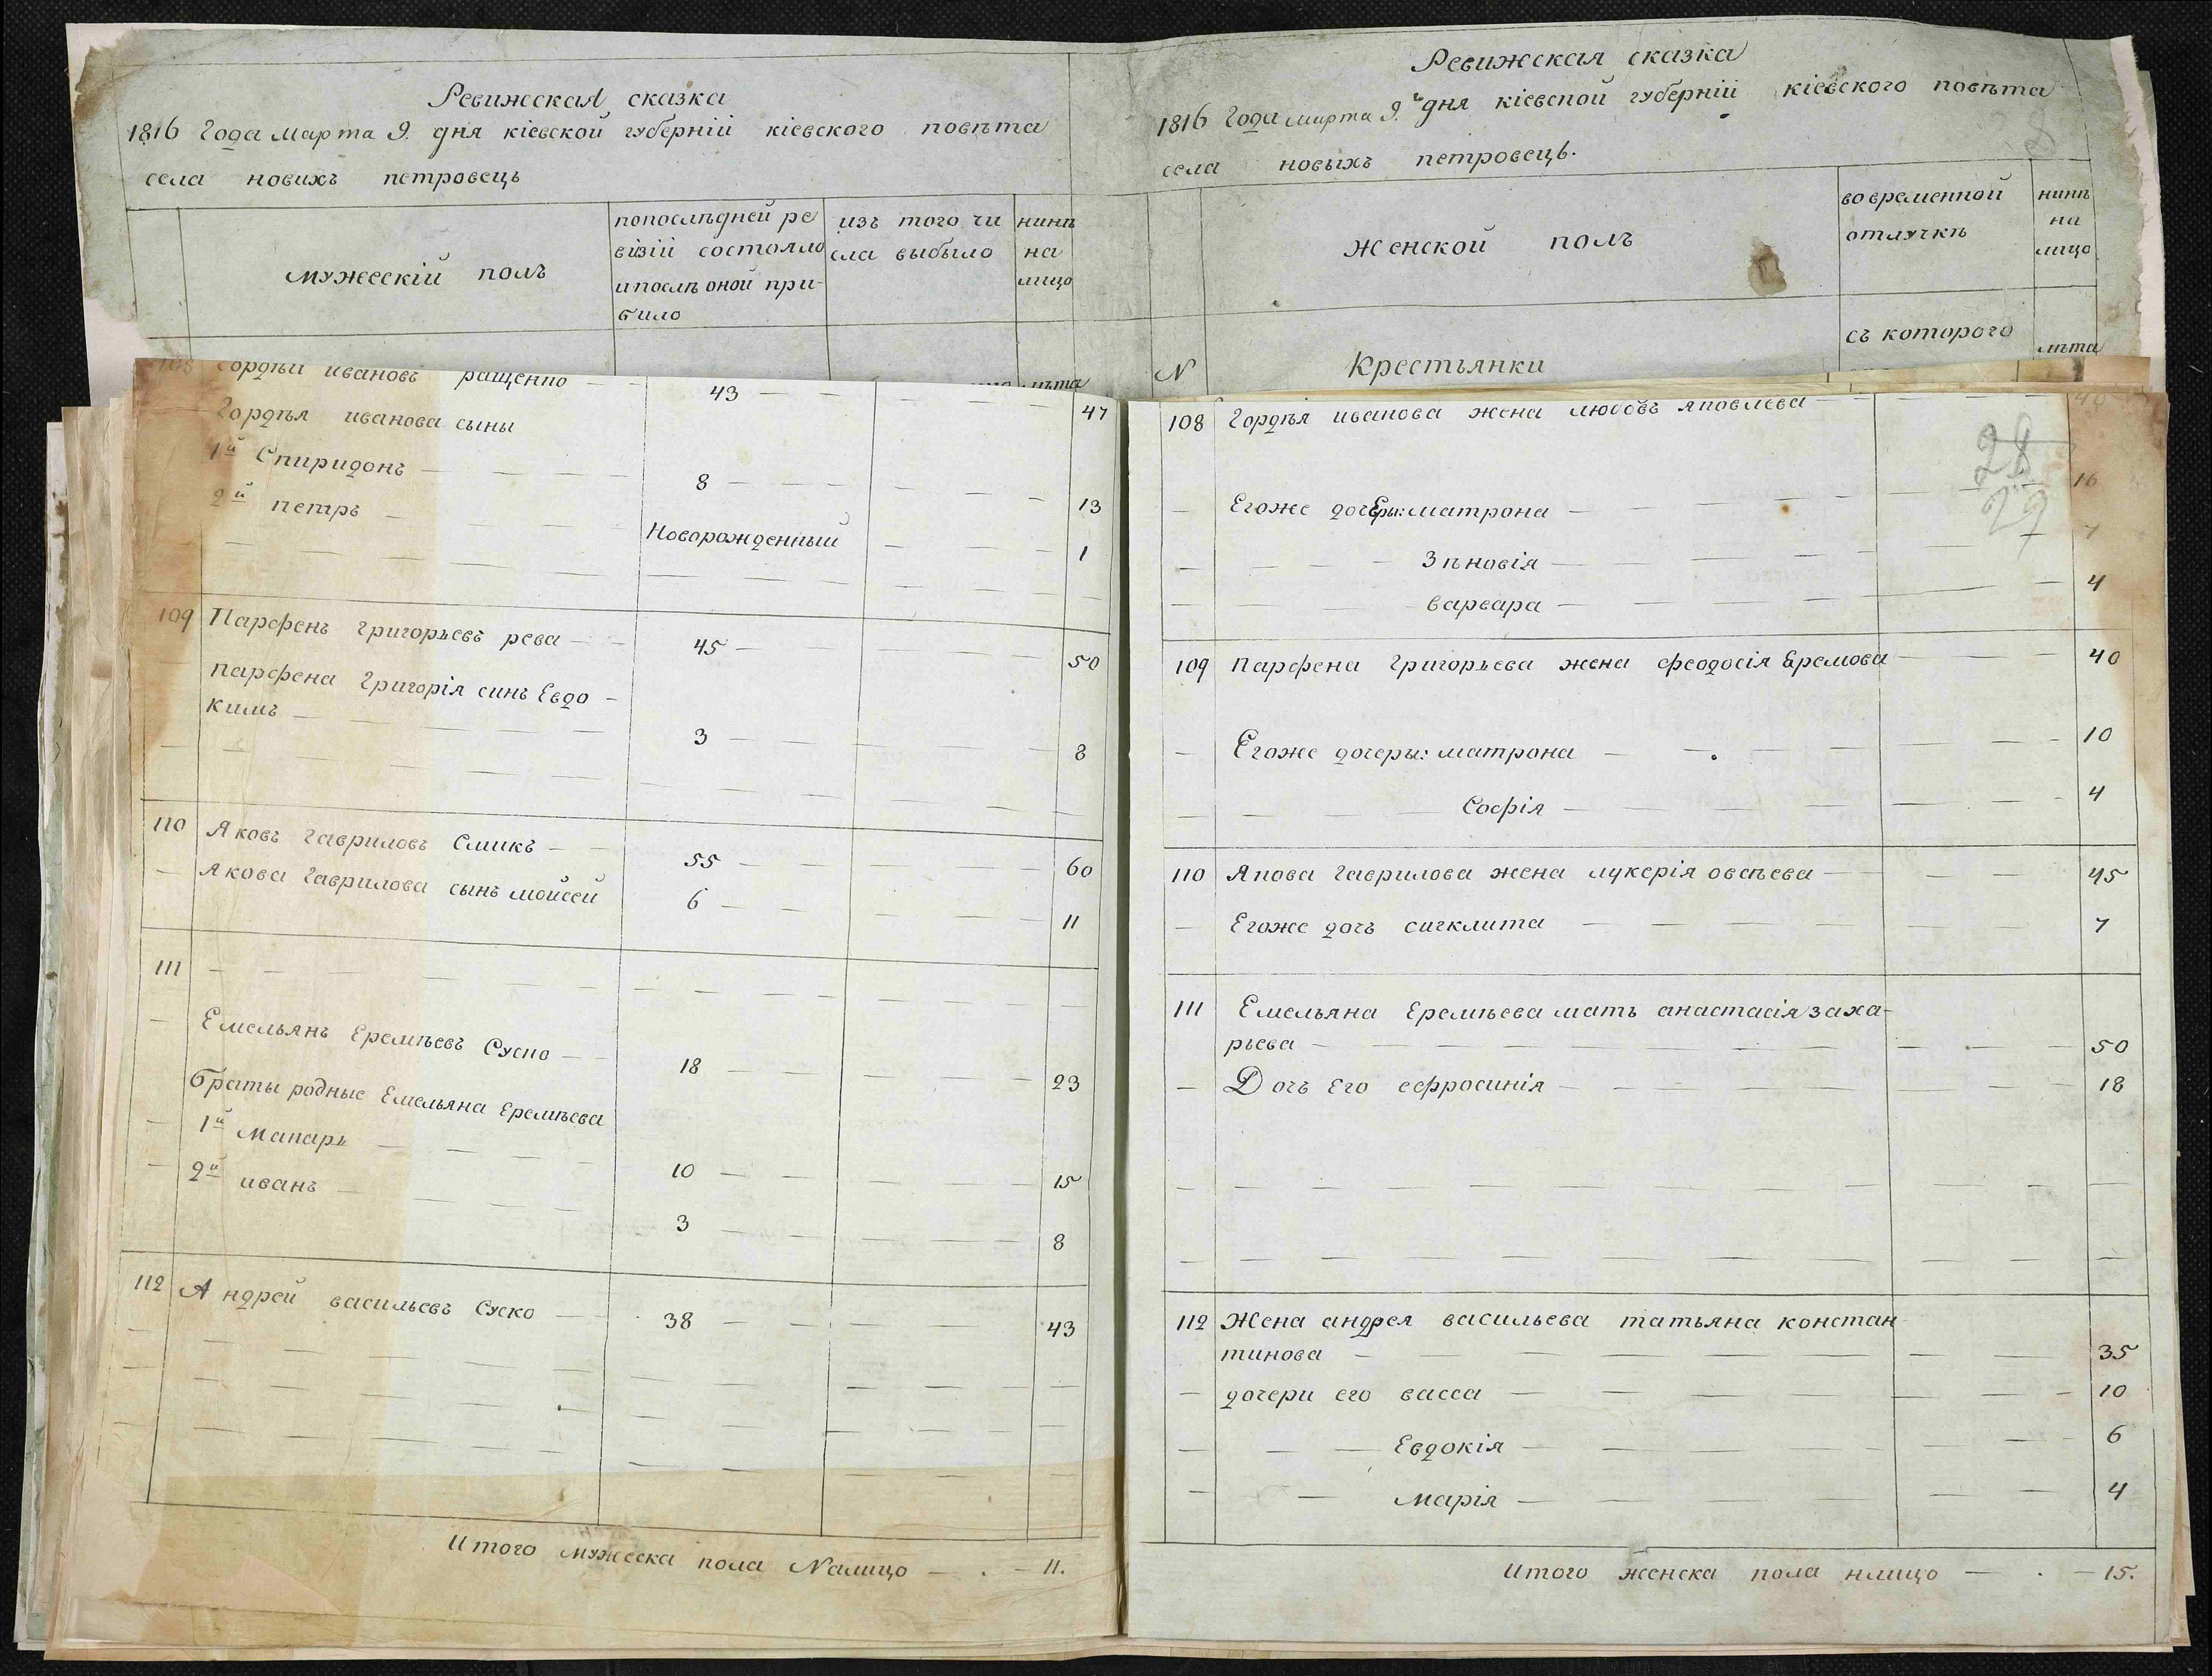 Ревижская сказка
1816 Года марта 9. дня кіевской губерніи кіевского повѣта
села новихъ петровець
мужескій полъ
попослѣдней ре
візіи состояло
ипослѣ оной при-
било
изъ того чи
сла выбыло
нинѣ
на
лицо
Ревижская сказка
1816 Года марта 9.г дня кіевской губерніи кіевского повѣта
села новыхъ петровець.
Женской полъ
вовременной
отлучкѣ
нинѣ
на
лицо
съ которого
лѣта
N Крестьянки
лѣта
108 Гордѣй ивановъ ращенко — 43 — 47
Гордѣя иванова сыны
1й Спиридонъ — 8 — 13
2й петръ — Новорожденный — 1
109 Парфенъ григорьевъ рева — 45 — 50
парфена Григорія синъ Евдо-
кимъ — 3 — 8
110 Яковъ гавриловъ Смикъ — 55 — 60
— Якова Гаврилова сынъ мойсей 6 — 11
111 —
— Емельянъ Еремѣевъ Суско — 18 — 23
браты родные Емельяна Еремѣева
— 1й Макаръ — 10 — 15
— 2й иванъ — 3 — 8
112 Андрей васильевъ Суско — 38 — 43
Итого мужеска пола Налицо — . — 11.
108 Гордѣя иванова жена любовъ яковлева — 40
28
29
— Егоже дочеры: матрона — 16
— Зѣновія — 7
— варвара — 4
109 парфена григорьева жена феодосія Еремова — 40
— Егоже дочеры: матрона — 10
— Софія — 4
110 Якова Гаврилова жена лукерія овсѣева — 45
— Егоже дочъ сигклита — 7
111 Емельяна Еремѣева мать анастасія заха-
рьева — 50
— Дочъ Его ефросинія — 18
112 Жена андрея васильева татьяна констан
тинова — 35
— дочери его васса — 10
— Евдокія — 6
— марія — 4
Итого женска пола нлицо — . — 15.